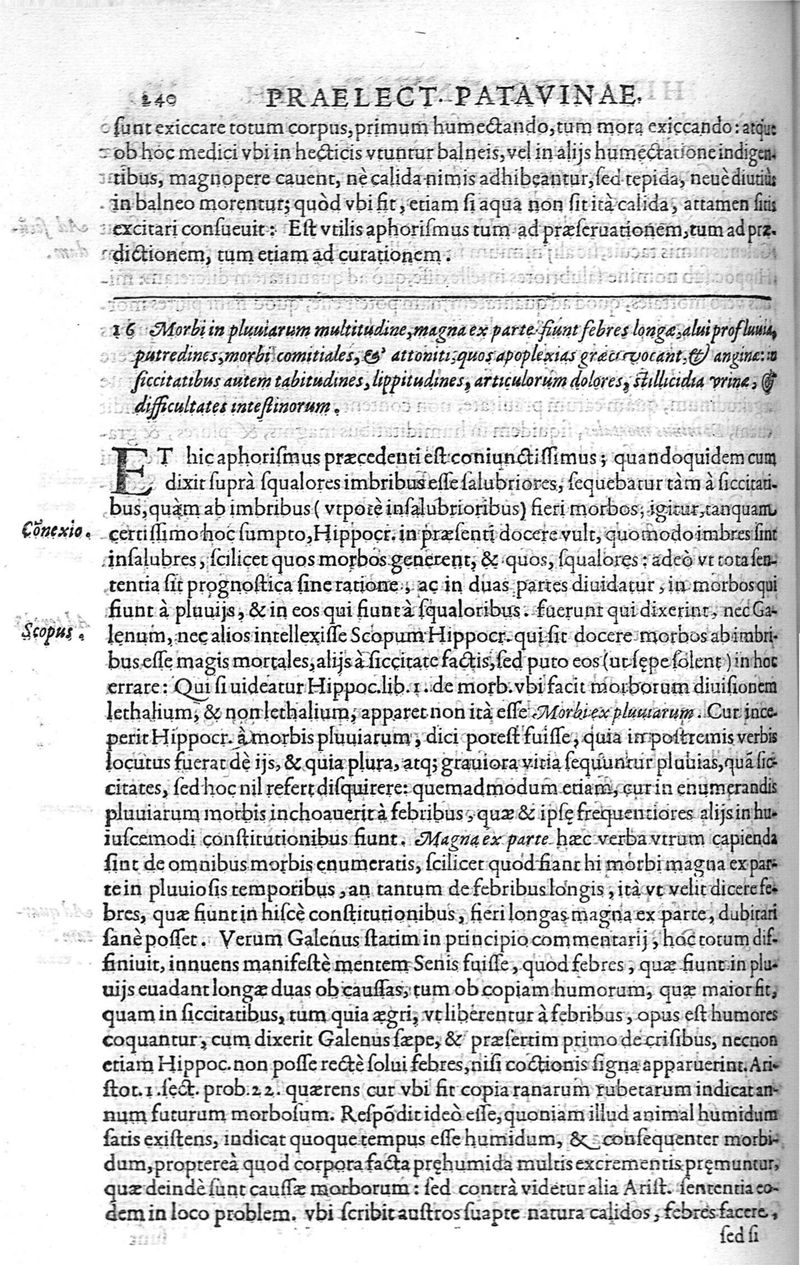 240 PRAELECT. PATAVINAE.
sunt exiccare totum corpus, primum humectando, tum mora exiccando: atque
ob hoc medici vbi in hecticis vtuntur balneis, vel in alijs humectatione indigen-
tibus, magnopere cauent, nè calida nimis adhibeantur, sed tepida, neuè diutiùs
in balneo morentur; quòd vbi fit, etiam si aqua non sit ità calida, attamen sitis
excitari consueuit: Est vtilis aphorismus tum ad præseruationem, tum ad præ-
dictionem, tum etiam ad curationem.
16 Morbi in pluuiarum multitudine, magna ex parte fiunt febres longæ, alui profluuia,
putredines, morbi comitiales, & attoniti; quos apoplexias græci vocant, & anginæ: in
siccitatibus autem tabitudines, lippitudines, articulorum dolores, stillicidia vrinæ, &
difficultates intestinorum.
ET hic aphorismus præcedenti est coniunctissimus; quandoquidem cum
dixit suprà squalores imbribus esse salubriores, sequebatur tàm à siccitati-
bus, quàm ab imbribus (vtpotè insalubrioribus) fieri morbos, igitur, tanquam
Cōnexio.
certissimo hoc sumpto, Hippocr. in præsenti docere vult, quomodo imbres sint
insalubres, scilicet quos morbos generent, & quos, squalores: adeò vt tota sen-
tentia sit prognostica sine ratione, ac in duas partes diuidatur, in morbos qui
fiunt à pluuijs, & in eos qui fiunt à squaloribus. fuerunt qui dixerint, nec Ga-
Scopus.
lenum, nec alios intellexisse Scopum Hippocr. qui sit docere morbos ab imbri-
bus esse magis mortales, alijs à siccitate factis, sed puto eos (ut sępe solent) in hoc
errare: Qui si uideatur Hippoc. lib. 1. de morb. vbi facit morborum diuisionem
lethalium, & non lethalium, apparet non ità esse Morbi ex pluuiarum. Cur ince-
perit Hippocr. à morbis pluuiarum, dici potest fuisse, quia in postremis verbis
locutus fuerat dè ijs, & quia plura, atq; grauiora vitia sequuntur pluuias, quā sic-
citates, sed hoc nil refert disquirere: quemadmodum etiam, cur in enumerandis
pluuiarum morbis inchoauerit à febribus, quæ & ipsę frequentiores alijs in hu-
iuscemodi constitutionibus fiunt. Magna ex parte hæc verba vtrum capienda
sint de omnibus morbis enumeratis, scilicet quòd fiant hi morbi magna ex par-
te in pluuiosis temporibus, an tantum de febribus longis, ità vt velit dicere fe-
bres, quæ fiunt in hiscè constitutionibus, fieri longas magna ex parte, dubitari
sanè posset. Verum Galenus statim in principio commentarij, hoc totum dif-
finiuit, innuens manifestè mentem Senis fuisse, quod febres, quæ fiunt in plu-
uijs euadant longæ duas ob caussas, tum ob copiam humorum, quæ maior fit,
quam in siccitatibus, tum quia ægri, vt liberentur à febribus, opus est humores
coquantur, cum dixerit Galenus sæpe, & præsertim primo de crisibus, necnon
etiam Hippoc. non posse rectè solui febres, nisi coctionis signa apparuerint. Ari-
stot. 1. sect. prob. 22. quærens cur vbi fit copia ranarum rubetarum indicat an-
num futurum morbosum. Respōdit ideò esse, quoniam illud animal humidum
satis existens, indicat quoque tempus esse humidum, & consequenter morbi-
dum, proptereà quod corpora facta pręhumida multis excrementis pręmuntur,
quæ deindè sunt caussæ morborum: sed contrà videtur alia Arist. sententia eo-
dem in loco problem. vbi scribit austros suapte natura calidos, febres facere,
sed si